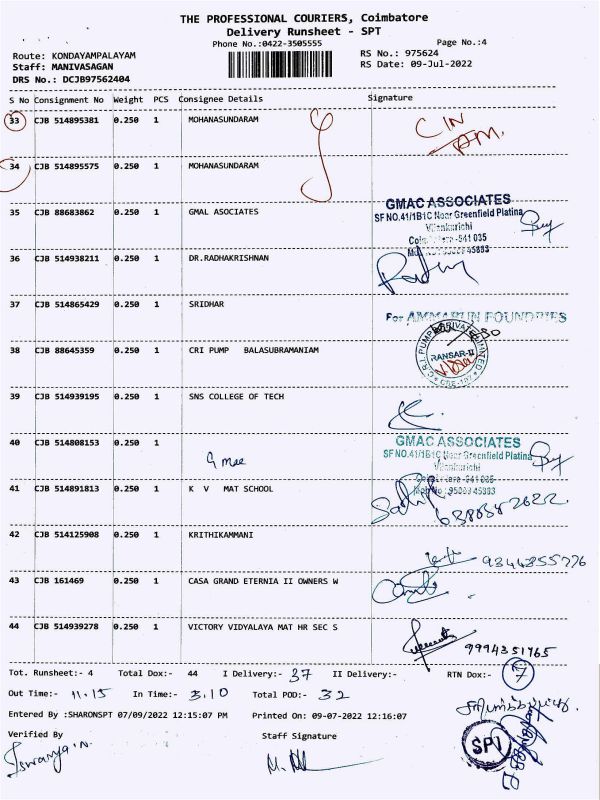 THE PROFESSIONAL COURIERS, Coimbatore
Delivery Runsheet - SPT
Phone No.:0422-3505555 Page No.:4
Route: KONDAYAMPALAYAM RS No.: 975624
Staff: MANIVASAGAN RS Date: 09-Jul-2022
DRS No.: DCJB97562404
S No Consignment No Weight PCS Consignee Details Signature
33 CJB 514895381 0.250 1 MOHANASUNDARAM
34 CJB 514895575 0.250 1 MOHANASUNDARAM
GMAC ASSOCIATES
35 CJB 88683862 0.250 1 GMAL ASOCIATES SF NO.41/1B1C Near Greenfield Platina
Vilankurichi
36 CJB 514938211 0.250 1 DR.RADHAKRISHNAN
37 CJB 514865429 0.250 1 SRIDHAR
For AMMARUN FOUNDRIES
38 CJB 88645359 0.250 1 CRI PUMP BALASUBRAMANIAM
RANSAR-II
39 CJB 514939195 0.250 1 SNS COLLEGE OF TECH
40 CJB 514808153 0.250 1 GMAC ASSOCIATES
SF NO.41/1B1C Near Greenfield Platina
Vilankurichi
41 CJB 514891813 0.250 1 K V MAT SCHOOL
42 CJB 514125908 0.250 1 KRITHIKAMMANI
9344355776
43 CJB 161469 0.250 1 CASA GRAND ETERNIA II OWNERS W
44 CJB 514939278 0.250 1 VICTORY VIDYALAYA MAT HR SEC S
9994351765
Tot. Runsheet:- 4 Total Dox:- 44 I Delivery:- 37 II Delivery:- RTN Dox:- 7
Out Time:- 11.15 In Time:- 3.10 Total POD:- 32
Entered By :SHARONSPT 07/09/2022 12:15:07 PM Printed On: 09-07-2022 12:16:07
Verified By Staff Signature
SPT